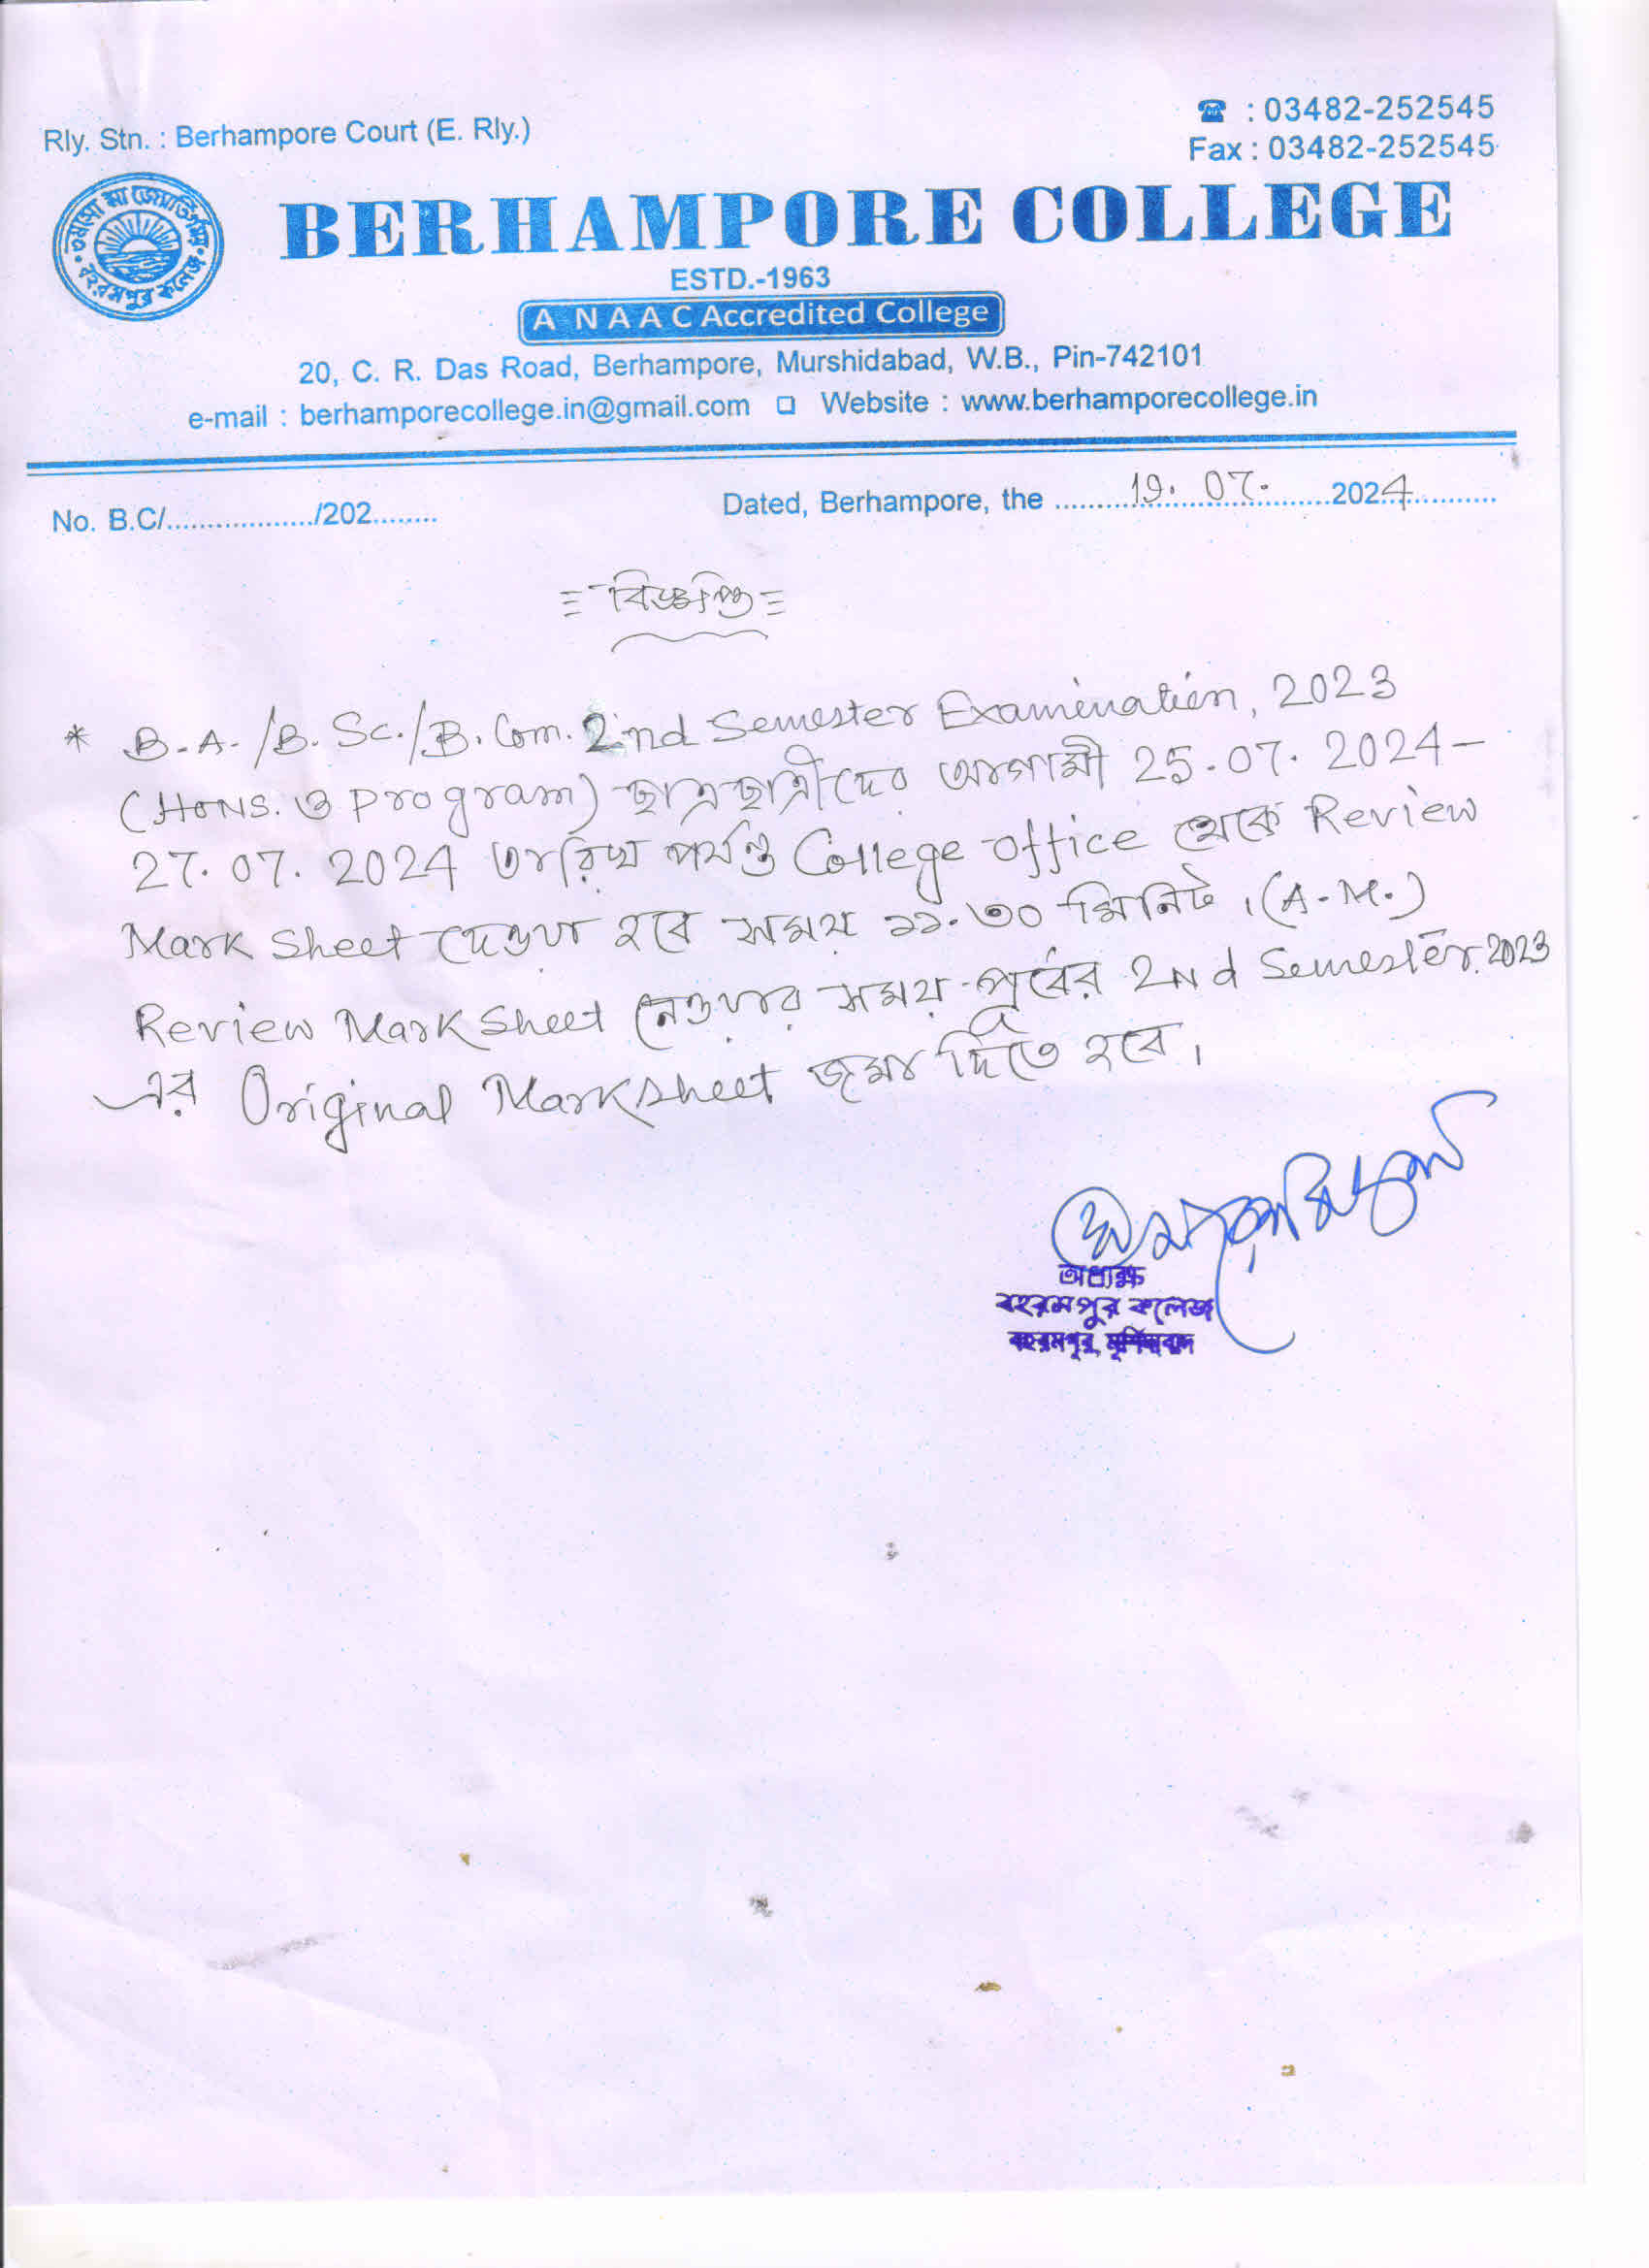 Rly. Stn. : Berhampore Court (E. Rly.)
☎ : 03482-252545
Fax : 03482-252545
তমসো মা জ্যোতির্গময়
বহরমপুর কলেজ
BERHAMPORE COLLEGE
ESTD.-1963
A NAAC Accredited College
20, C. R. Das Road, Berhampore, Murshidabad, W.B., Pin-742101
e-mail : berhamporecollege.in@gmail.com ❑ Website : www.berhamporecollege.in
No. B.C/................../202........ Dated, Berhampore, the ..........19. 07. ..........2024..........
বিজ্ঞপ্তি
* B.A./B.Sc./B.Com. 2nd Semester Examination, 2023
(HONS. ও Program) ছাত্রছাত্রীদের আগামী 25.07.2024-
27.07.2024 তারিখ পর্যন্ত College office থেকে Review
Mark Sheet দেওয়া হবে সময় ১১.৩০ মিনিট। (A.M.)
Review Mark Sheet নেওয়ার সময় পূর্বের 2nd Semester. 2023
এর Original Marksheet জমা দিতে হবে।
অধ্যক্ষ
বহরমপুর কলেজ
বহরমপুর, মুর্শিদাবাদ